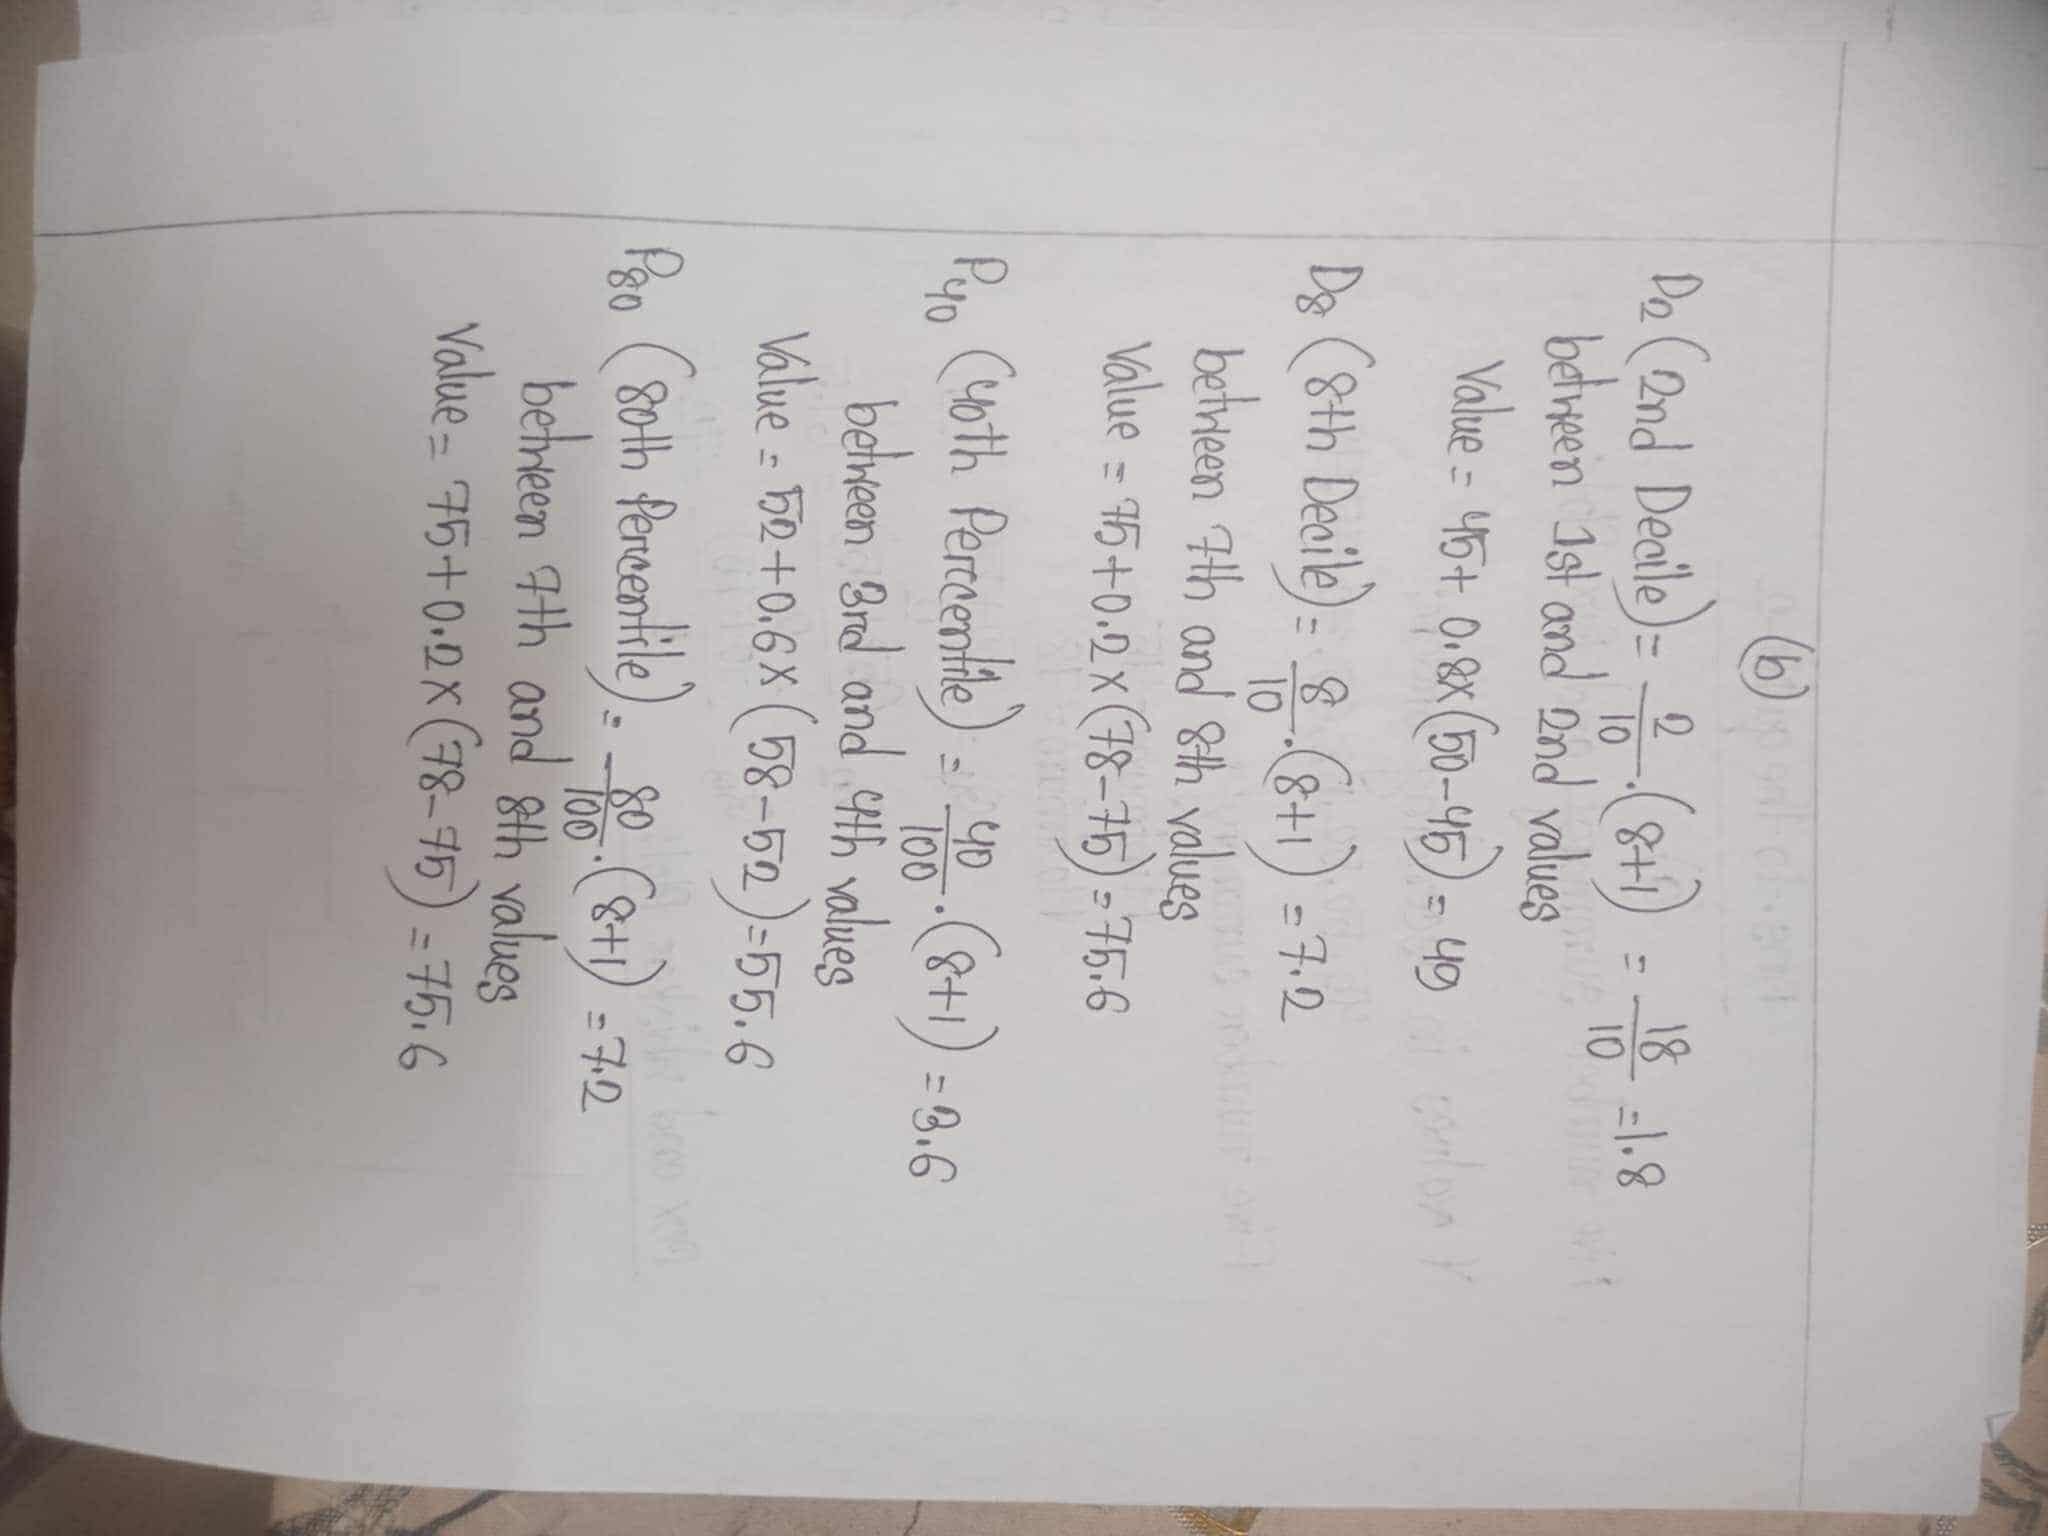 (b)
D2 (2nd Decile) = 2/10 . (8+1) = 18/10 = 1.8
between 1st and 2nd values
Value = 45 + 0.8 × (50-45) = 49
D8 (8th Decile) = 8/10 . (8+1) = 7.2
between 7th and 8th values
Value = 75+0.2 × (78-75) = 75.6
P40 (40th Perccentile) = 40/100 . (8+1) = 3.6
between 3rd and 4th values
Value = 52+0.6 × (58-52) = 55.6
P80 (80th Percentile) = 80/100 . (8+1) = 7.2
between 7th and 8th values
Value = 75+0.2 × (78-75) = 75.6